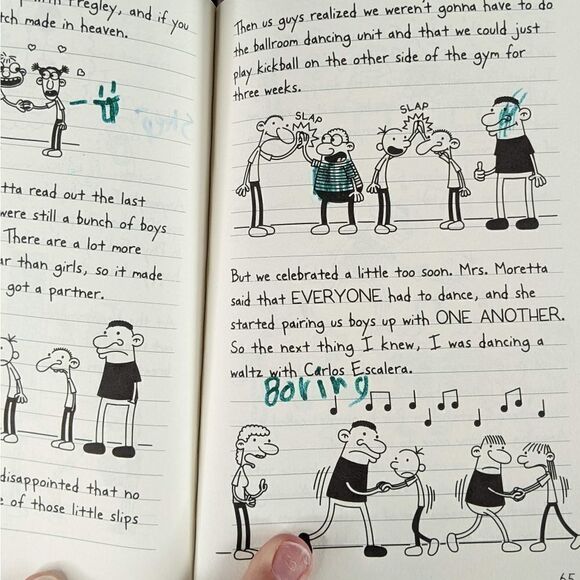 Fregley, and if you
made in heaven.
read out the last
were still a bunch of boys
There are a lot more
than girls, so it made
got a partner.
disappointed that no
of those little slips
Then us guys realized we weren't gonna have to do
the ballroom dancing unit and that we could just
play kickball on the other side of the gym for
three weeks.
SLAP
SLAP
But we celebrated a little too soon. Mrs. Moretta
said that EVERYONE had to dance, and she
started pairing us boys up with ONE ANOTHER.
So the next thing I knew, I was dancing a
waltz with Carlos Escalera.
Boring
65